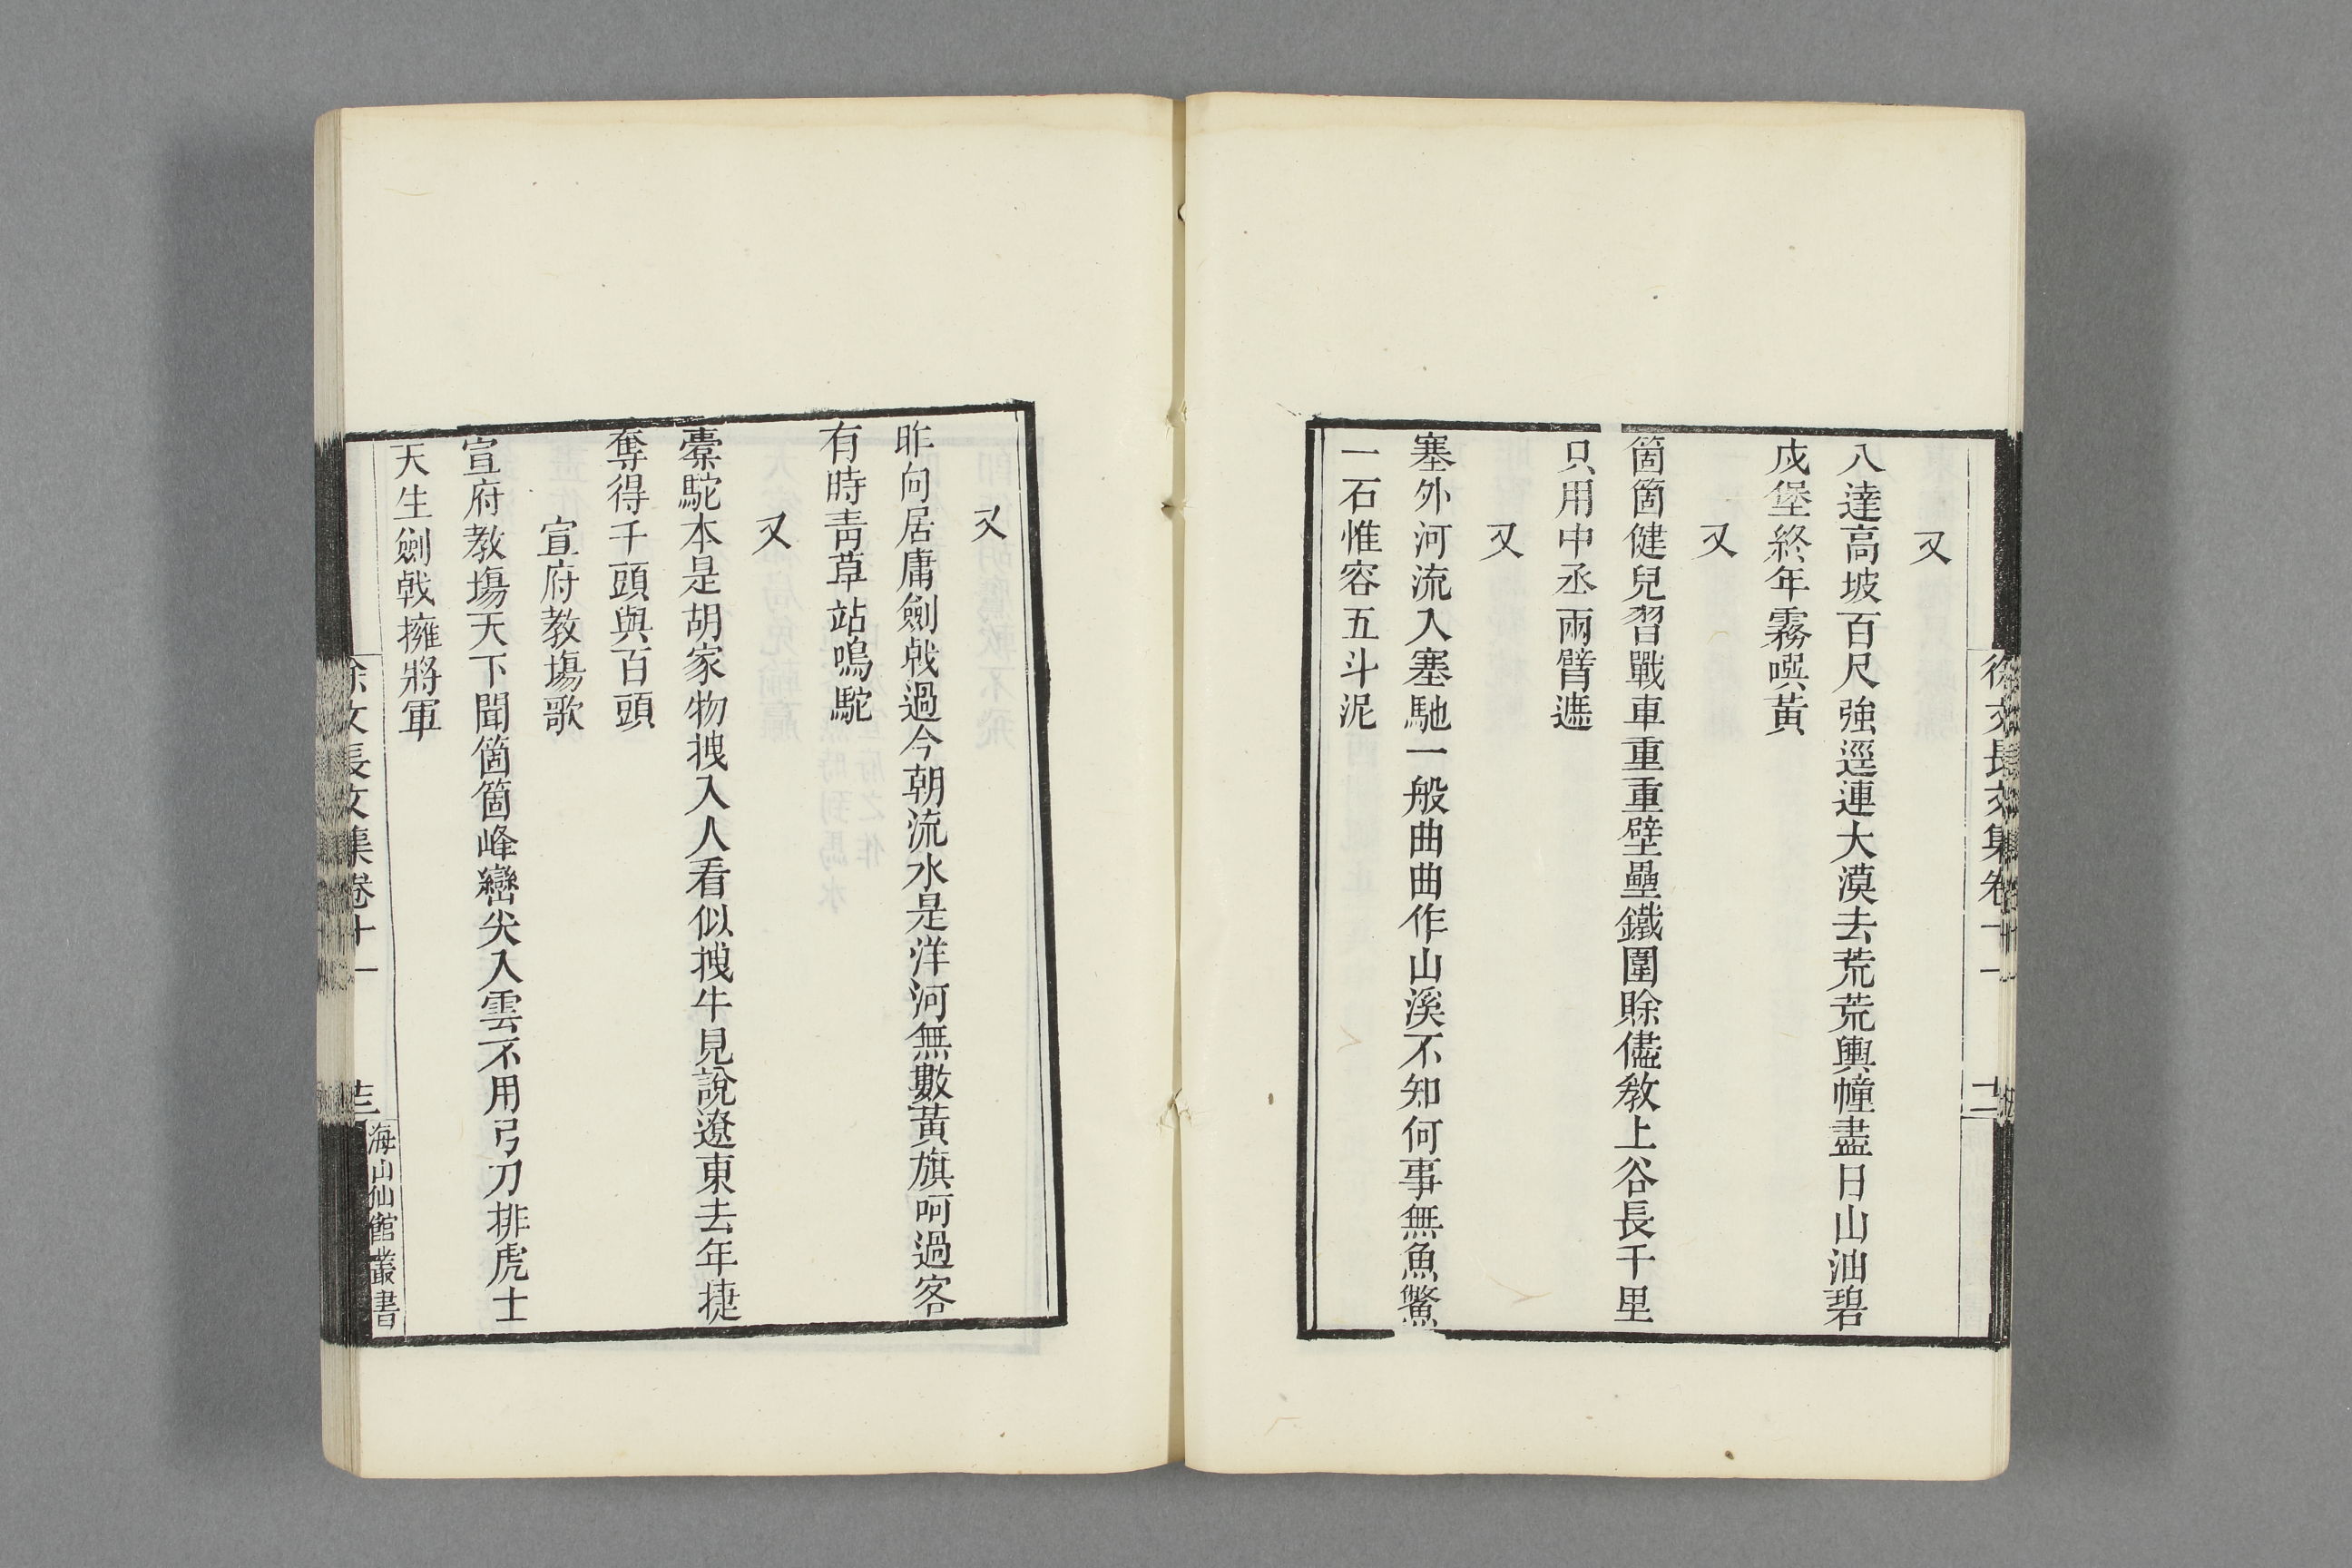 徐文長文集卷十一
十二
又
八達高坡百尺強逕連大漠去荒荒輿幢盡日山油碧
戍堡終年霧嘢黃
又
箇箇健兒習戰車重重壁壘鐵圍賖儘教上谷長千里
只用中丞兩臂遮
又
塞外河流入塞馳一般曲曲作山溪不知何事無魚鱉
一石惟容五斗泥
又
昨向居庸劍戟過今朝流水是洋河無數黃旗呵過客
有時青草站鳴駝
又
橐駝本是胡家物拽入人看似拽牛見說遼東去年捷
奪得千頭與百頭
宣府教場歌
宣府教場天下聞箇箇峰巒尖入雲不用弓刀排虎士
天生劍戟擁將軍
徐文長文集卷十一
海山仙館叢書